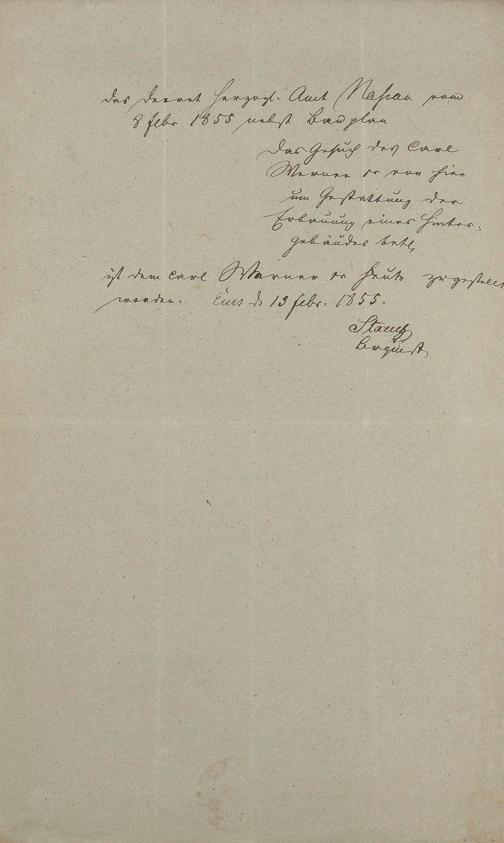 das Decret Herzogl. Amt Nassau vom
8 Febr 1855 nebst Bauplan
das Gesuch des Carl
Werner von hier
um Gestattung der
Erbauung eines Hinter-
gebäudes betr,
ist dem Carl Werner heute zugestellt
worden. Ems d 13 Febr. 1855.